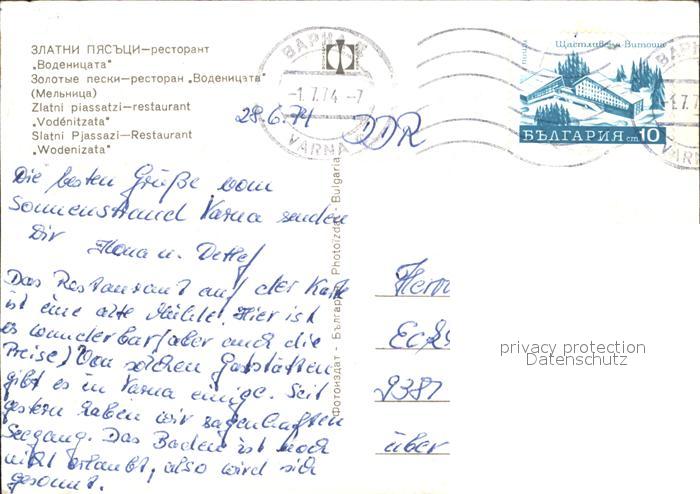 ЗЛАТНИ ПЯСЪЦИ—ресторант
„Воденицата"
Золотые пески—ресторан „Воденицата"
(Мельница)
Zlatni piassatzi—restaurant
„Vodénitzata"
Slatni Pjassazi—Restaurant
„Wodenizata"
ВАРНА
-1.7.74.-7
VARNA
ПОЩА
Щастливеца-Витоша
БЪЛГАРИЯ ст 10
-1.7.7
VARN
28.6.74
DDR
Die besten Grüße vom
Sonnenstrand Varna senden
Dir
Ilona u. Detlef
Das Restaurant auf der Karte
ist eine alte Mühle. Hier ist
es wunderbar (aber auch die
Preise) Von solchen Gaststätten
gibt es in Varna einige. Seit
gestern haben wir sagenhaften
Seegang. Das Baden ist noch
nicht erlaubt, also wird sich
gesonnt.
Фотоиздат - България Photoizdat - Bulgaria
Herrn
9381
über
privacy protection
Datenschutz